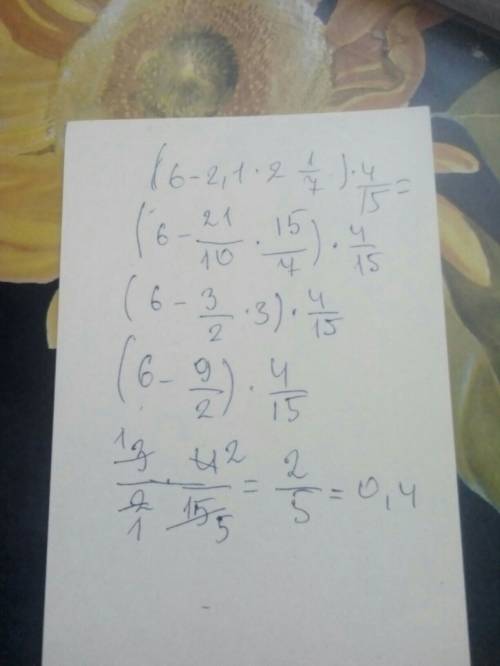 (6-2,1·2 1/7)·4/15=
(6-21/10·15/7)·4/15
(6-3/2·3)·4/15
(6-9/2)·4/15
1 3 4 2 / 2 1 15 5 = 2/5 = 0,4